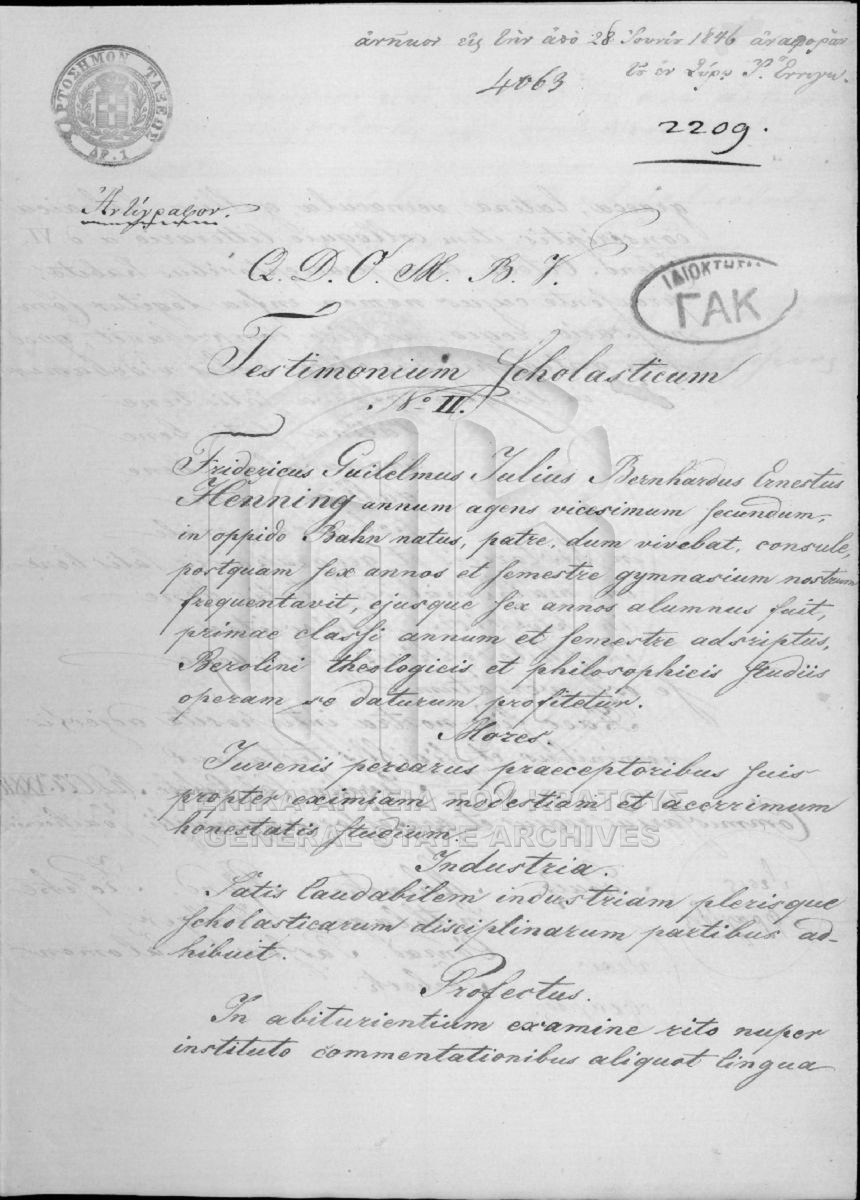 ἀνῆκον εἰς τὴν ἀπὸ 28 Ἰουνίου 1846 ἀναφορὰν
τοῦ ἐν Σύρῳ
4063
2209.
ΧΑΡΤΟΣΗΜΟΝ ΤΑΞΕΩΣ
ΔΡ. 1
Ἀντίγραφον.
Q. D. O. M. B. V.
ΙΔΙΟΚΤΗΣΙΑ
ΓΑΚ
Testimonium Scholasticum
No II.
Fridericus Guilelmus Julius Bernhardus Ernestus
Henning annum agens vicesimum secundum,
in oppido Bahn natus, patre, dum vivebat, consule,
postquam sex annos et semestre gymnasium nostrum
frequentavit, ejusque sex annos alumnus fuit,
primae classi annum et semestre adscriptus,
Berolini theologicis et philosophicis studiis
operam se daturum profitetur.
Mores.
Juvenis percarus praeceptoribus suis
propter eximiam modestiam et acerrimum
honestatis studium.
ΓΕΝΙΚΑ ΑΡΧΕΙΑ ΤΟΥ ΚΡΑΤΟΥΣ
GENERAL STATE ARCHIVES
Industria.
Satis laudabilem industriam plerisque
scholasticarum disciplinarum partibus ad-
hibuit.
Profectus.
In abiturientium examine rito nuper
instituto commentationibus aliquot lingua